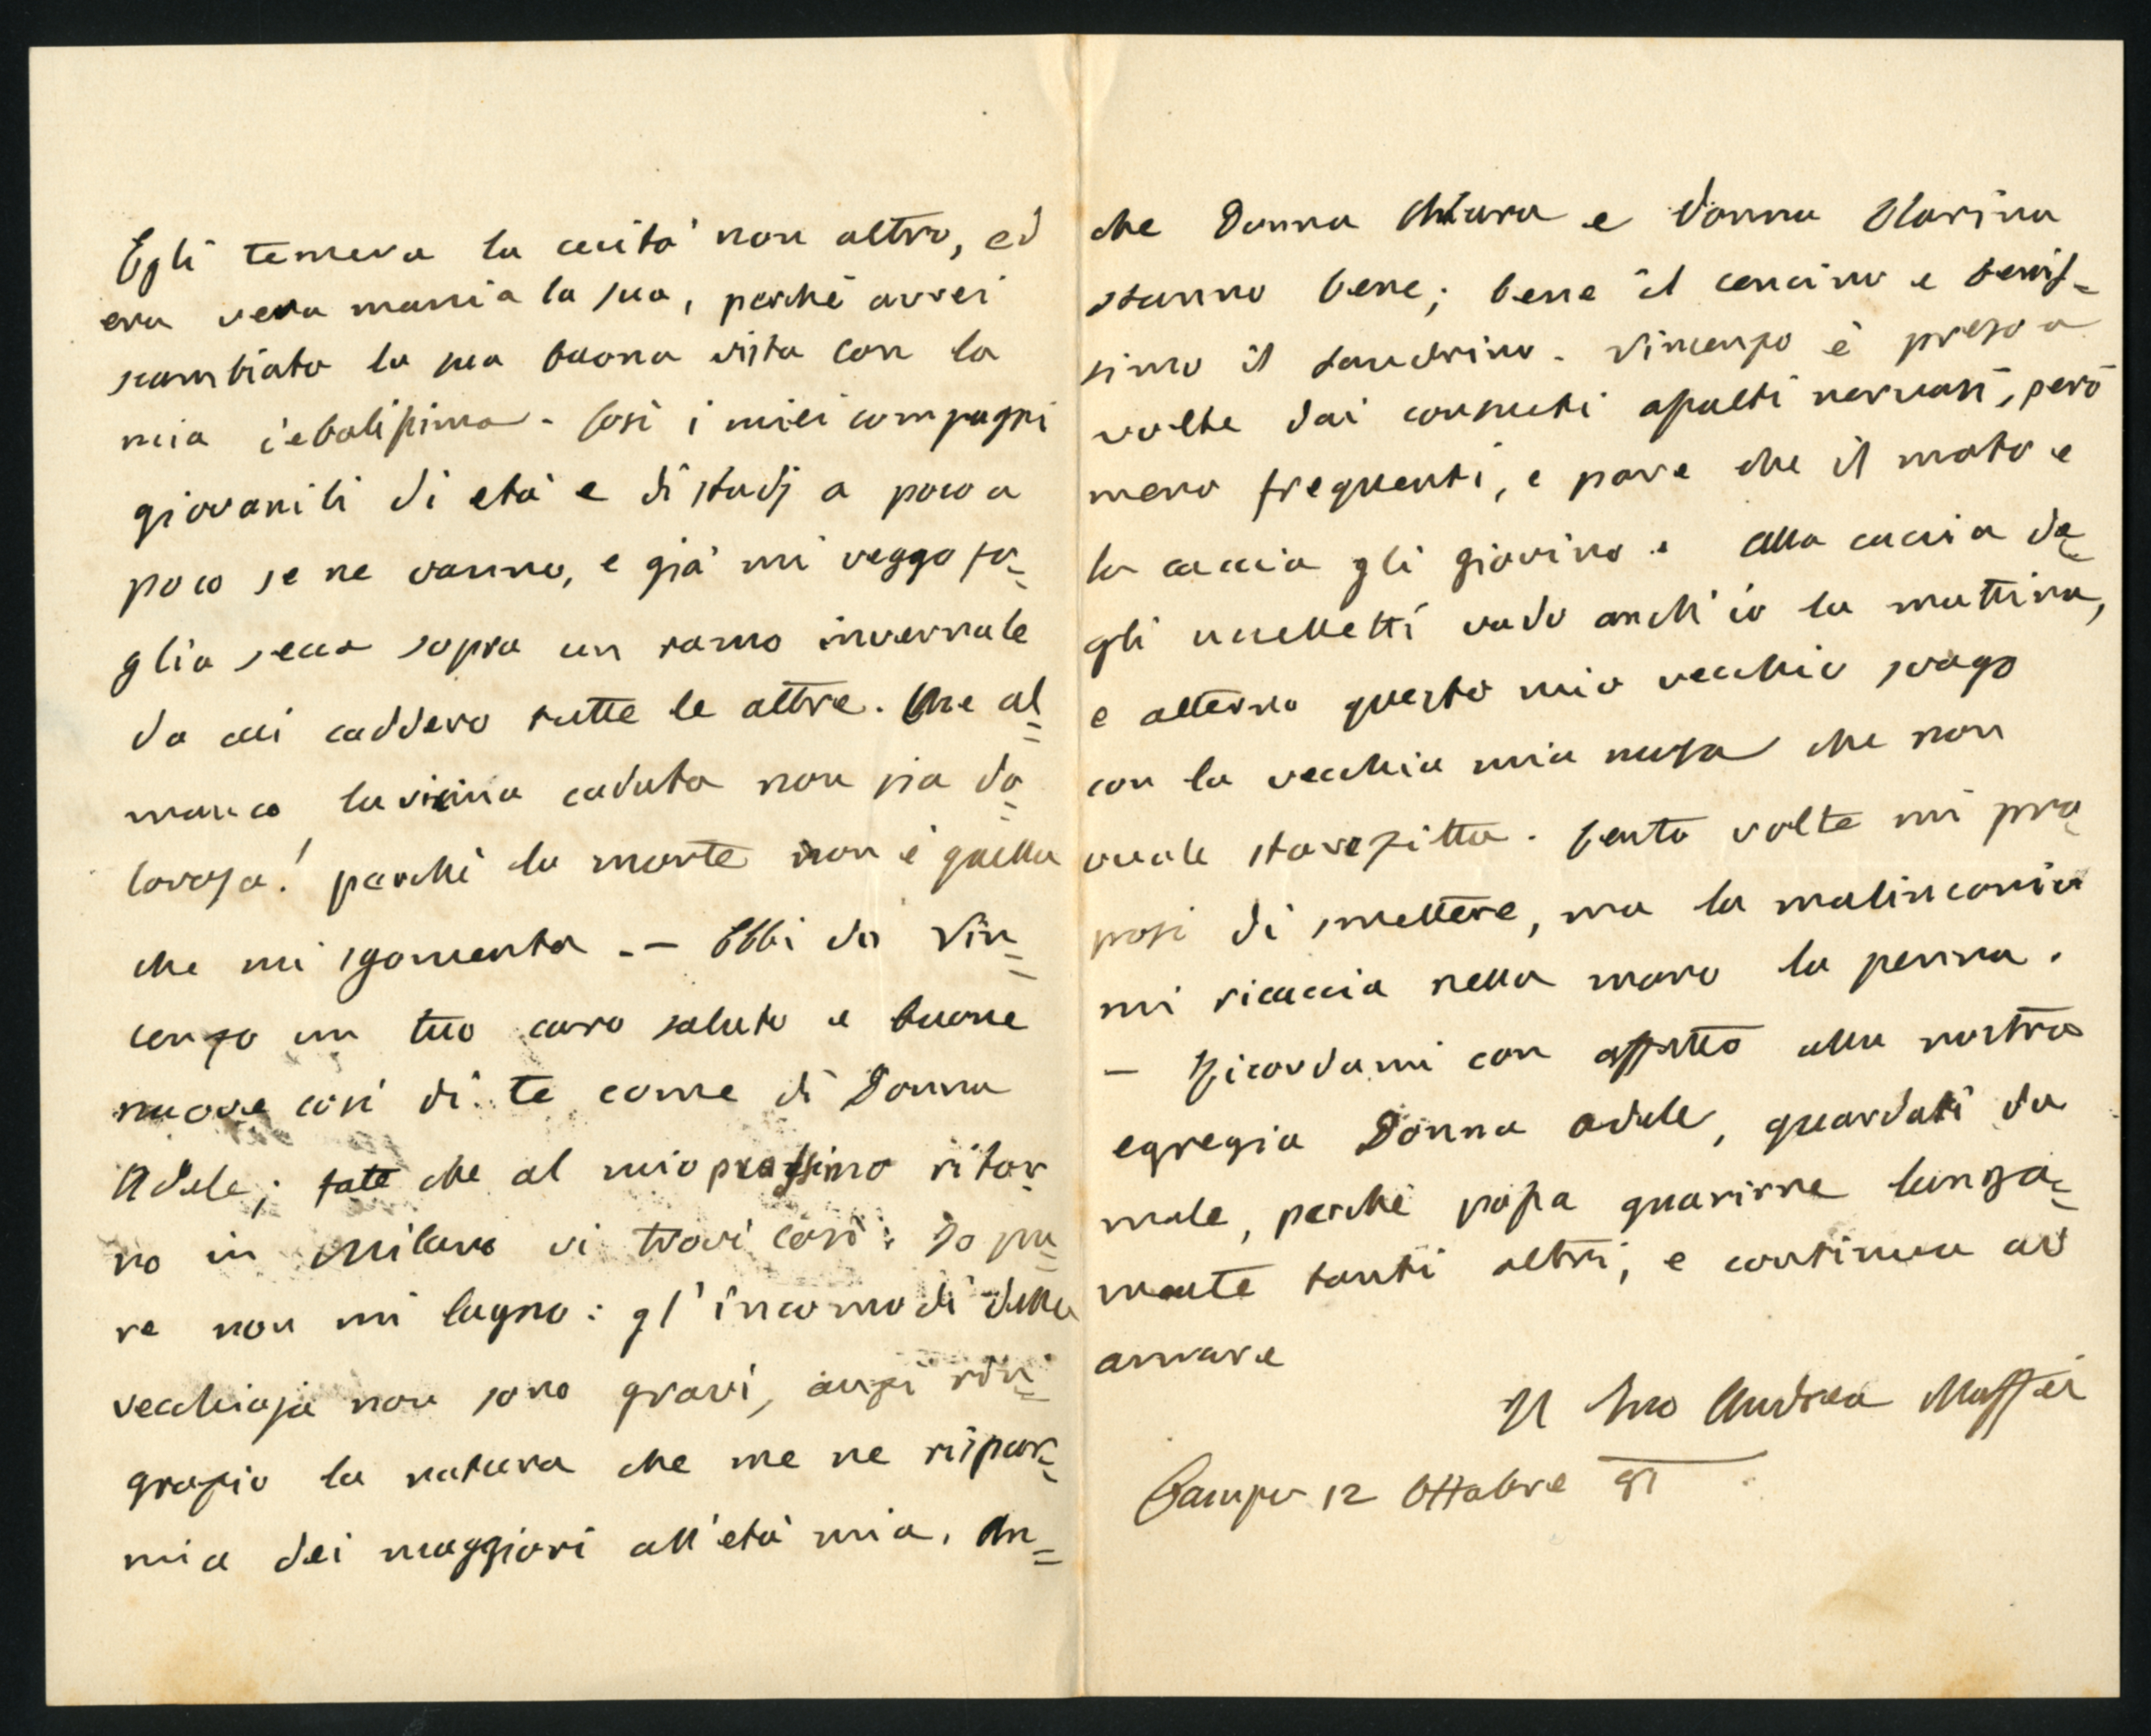 Egli temeva la cecità non altro, ed
era vera mania la sua, perchè avrei
scambiato la sua buona vista con la
mia debolissima. Così i miei compagni
giovanili di età e di studj a poco a
poco se ne vanno, e già mi veggo fo=
glia secca sopra un ramo invernale
da cui caddero tutte le altre. Che al=
manco la vicina caduta non sia do=
lorosa! perchè la morte non è quella
che mi sgomenta. — Ebbi da Vin=
cenzo un tuo caro saluto e buone
nuove così di te come di Donna
Adele; fate che al mio prossimo ritor
no in Milano vi trovi così. Io pu=
re non mi lagno: gl'incomodi della
vecchiaja non sono gravi, anzi rin=
grazio la natura che me ne rispar=
mia dei maggiori all'età mia. An=
che Donna Chiara e Donna Clarina
stanno bene; bene il Cencino e benis=
simo il Sandrino. Vincenzo è preso a
volte dai consueti assalti nervosi, però
meno frequenti, e pare che il moto e
la caccia gli giovino. Alla caccia de=
gli uccelletti vado anch'io la mattina,
e alterno questo mio vecchio svago
con la vecchia mia musa che non
vuole stare zitta. Cento volte mi pro
posi di smettere, ma la malinconia
mi ricaccia nella mano la penna.
— Ricordami con affetto alla nostra
egregia Donna Adele, guardati da
male, perchè possa guarirne lunga=
mente tanti altri, e continua ad
amare
Il tuo Andrea Maffei
Campo 12 Ottobre 81